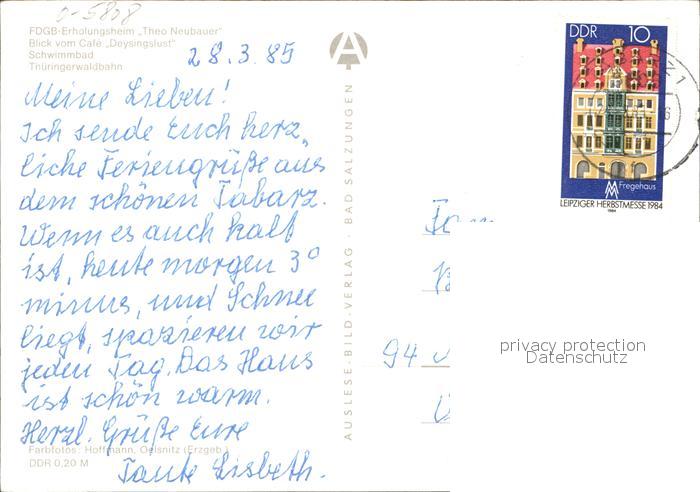 0-5808
FDGB-Erholungsheim „Theo Neubauer"
Blick vom Café „Deysingslust"
Schwimmbad
Thüringerwaldbahn
28.3.85
Meine Lieben!
Ich sende Euch herz,
liche Feriengrüße aus
dem schönen Tabarz.
Wenn es auch kalt
ist, heute morgen 3°
minus, und Schnee
liegt, spazieren wir
jeden Tag. Das Haus
ist schön warm.
Herzl. Grüße Eure
Tante Lisbeth.
Farbfotos: Hoffmann, Oelsnitz (Erzgeb.)
DDR 0,20 M
AUSLESE-BILD-VERLAG · BAD SALZUNGEN
DDR 10
Fregehaus
LEIPZIGER HERBSTMESSE 1984
1984
94
privacy protection
Datenschutz